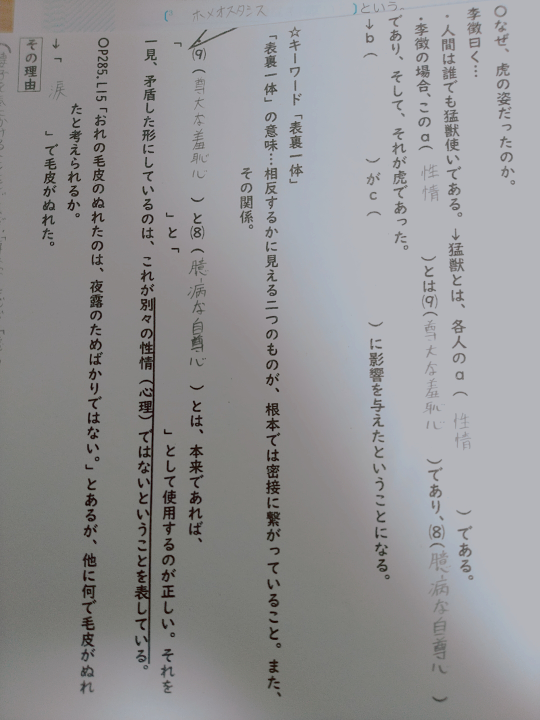 ホメオスタシス　）という
〇なぜ、虎の姿だったのか。
李徴曰く…
・人間は誰でも猛獣使いである。→猛獣とは、各人のa（　性情　）である。
・李徴の場合、このa（　性情　）とは(9)（尊大な羞恥心　）であり、(8)（臆病な自尊心　）
であり、そして、それが虎であった。
→b（　　）がc（　　）に影響を与えたということになる。
☆キーワード「表裏一体」
「表裏一体」の意味…相反するかに見える二つのものが、根本では密接に繋がっていること。また、
その関係。
(9)（尊大な羞恥心　）と(8)（臆病な自尊心　）とは、本来であれば、
「　　」と「　　」として使用するのが正しい。それを
一見、矛盾した形にしているのは、これが別々の性情（心理）ではないということを表している。
〇P285、L15「おれの毛皮のぬれたのは、夜露のためばかりではない。」とあるが、他に何で毛皮がぬれ
たと考えられるか。
→「　涙　」で毛皮がぬれた。
その理由